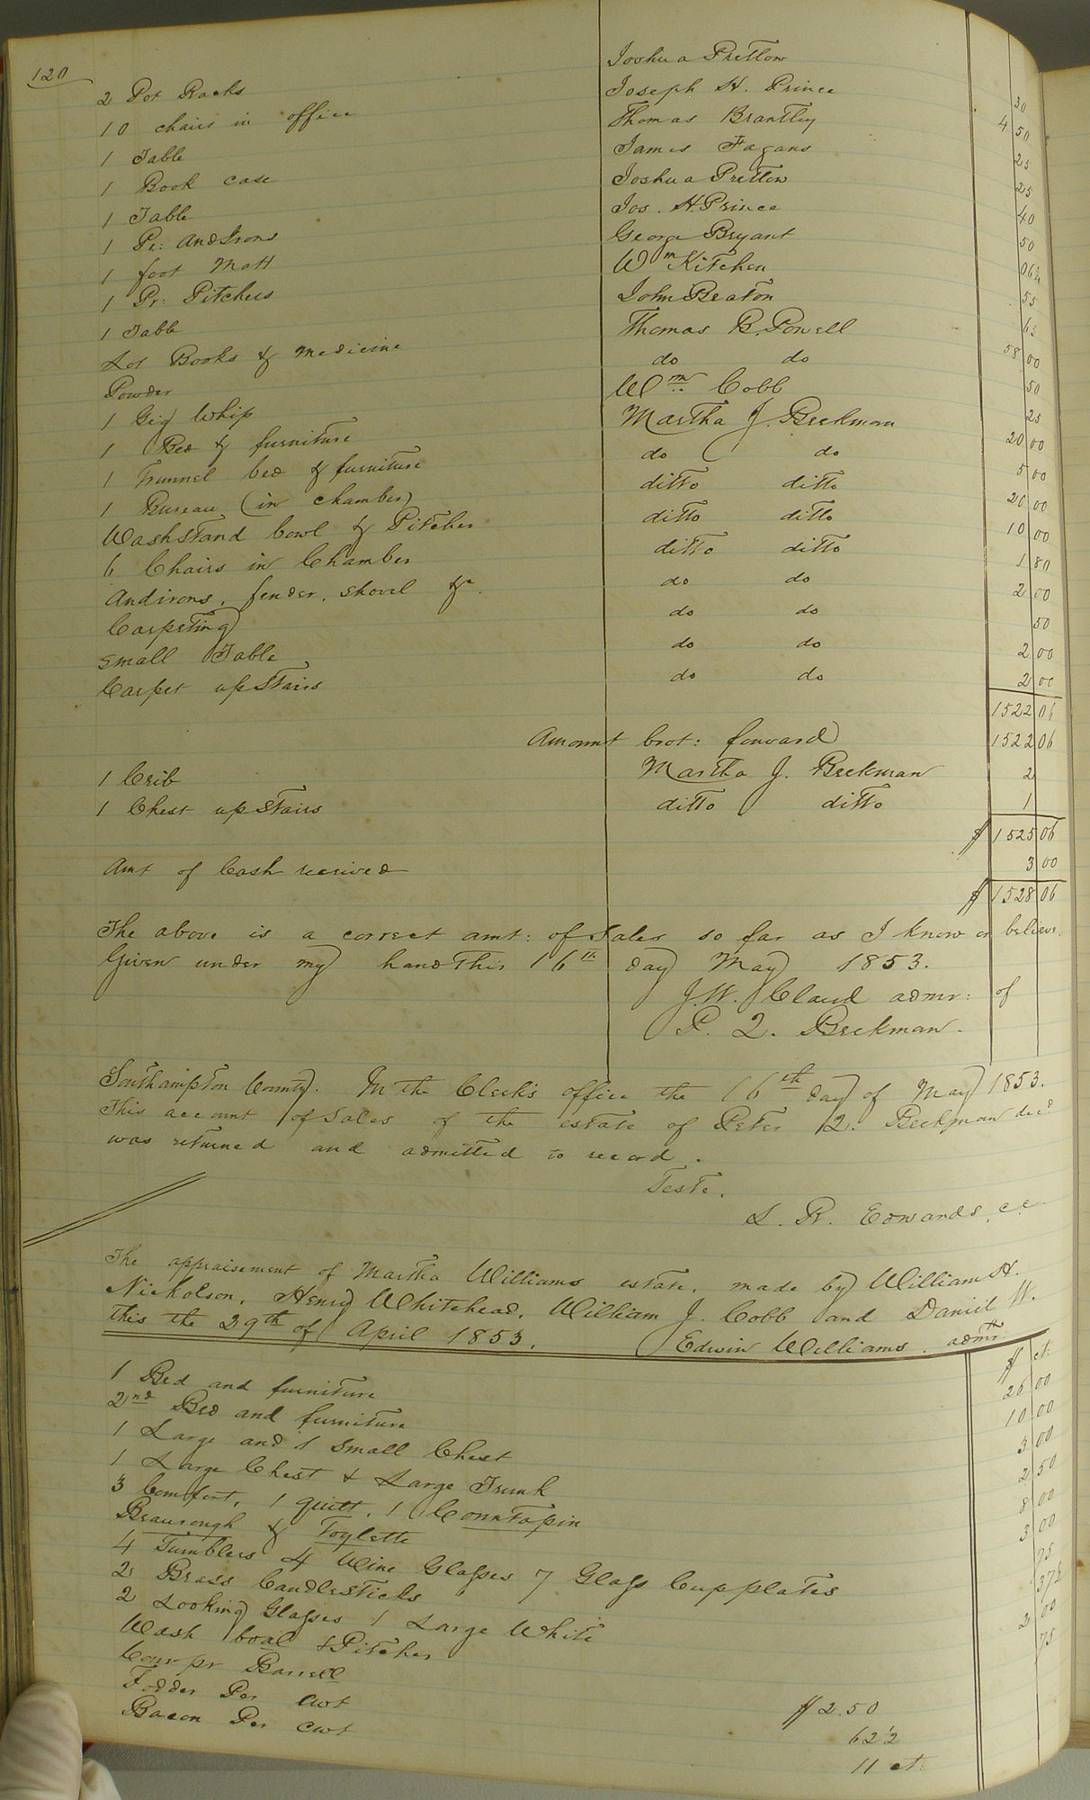 120
2 Pot Racks Joshua Pretlow 30
10 chairs in office Joseph H. Prince 4 50
1 Table Thomas Brantley 25
1 Book case James Fagans 25
1 Table Joshua Pretlow 40
1 Pr: AndIrons Jos. H. Prince 50
1 foot Matt George Bryant 06¼
1 Pr. Pitchers Wm Kitchen 55
1 Table John Beaton
Lot Books & Medicine Thomas B. Powell 58 00
Powder do do 50
1 Gig Whip Wm Cobb 25
1 Bed & furniture Martha J. Beekman 20 00
1 Trunnel bed & furniture do do 5 00
1 Bureau (in chamber) ditto ditto 20 00
Washstand bowl & Pitcher ditto ditto 10 00
6 Chairs in Chamber ditto ditto 1 80
Andirons, fender, shovel &c. do do 2 00
Carpeting do do 50
small Table do do 2 00
Carpet up Stairs do do 2 00
1522 06
Amount brot: forward 1522 06
1 Crib Martha J. Beekman 2
1 Chest up Stairs ditto ditto 1
$ 1525 06
Amt of Cash received 3 00
$ 1528 06
The above is a correct amt: of Sales so far as I know or believe.
Given under my hand this 16th day May 1853.
J. W. Claud admr: of
P. Q. Beekman.
Southampton County. In the Clerk's office the 16th day of May 1853.
This account of Sales of the estate of Peter Q. Beekman decd
was returned and admitted to record.
Teste.
L. R. Edwards, c.c.
The appraisement of Martha Williams estate, made by William H.
Nicholson, Henry Whitehead, William J. Cobb and Daniel W.
this the 29th of April 1853. Edwin Williams. admr
$ ct.
1 Bed and furniture 20 00
2nd Bed and furniture 10 00
1 Large and 1 small Chest 3 00
1 Large Chest & Large Trunk 2 50
3 Comfort, 1 quilt, 1 Countapin 8 00
Beaurough & Toylette 3 00
4 Tumblers 4 Wine Glasses 7 Glass Cupplates 75
2 Brass Candlesticks 37½
2 Looking Glasses 1 Large White 2 00
Wash boal & Pitcher 75
Corn pr Barrell $ 2.50
Fodder Per cwt 62½
Bacon Per cwt 11 ct.